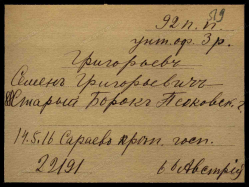 92 п. п
унт. оф. 3 р.
Григорьевъ
Семенъ Григорьевичъ
Старый Борокъ Псковск. г.
14.5.16 Сараев крет. госп.
22191
в Австрію